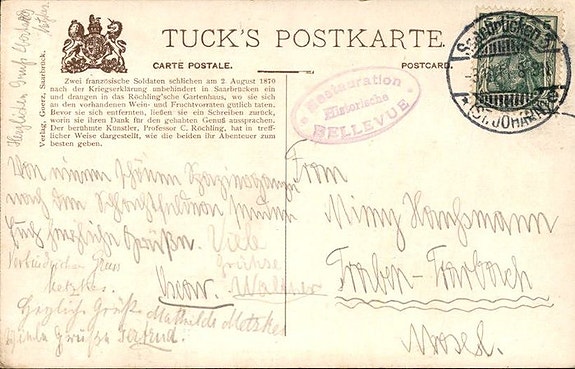 TUCK'S POSTKARTE.
CARTE POSTALE.
POSTCARD
Zwei französische Soldaten schlichen am 2. August 1870
nach der Kriegserklärung unbehindert in Saarbrücken ein
und draugen in das Röchling'sche Gartenhaus, wo sie sich
an den vorhandenen Wein- und Fruchtvorräten gütlich taten.
Bevor sie sich entfernten, ließen sie ein Schreiben zurück,
worin sie ihren Dank für den gehabten Genuß aussprachen.
Der berühmte Künstler, Professor C. Röchling, hat in treff-
licher Weise dargestellt, wie die beiden ihr Abenteuer zum
besten geben.
Verlag, Goertz, Saarbrück.
Herzlichen Gruß
Restauration
Historische
BELLEVUE
Saarbrücken 3
(ST. JOHANN)
Von einem schönen Spaziergange
nach den Schlachtfeldern senden
Euch herzliche Grüße. Viele
Grüsse
Oscar. Walter
Herzliche Grüße Mathilde Metzkes
Viele Grüße
Frau
Mimy Haussmann
Traben-Trarbach
Mosel.